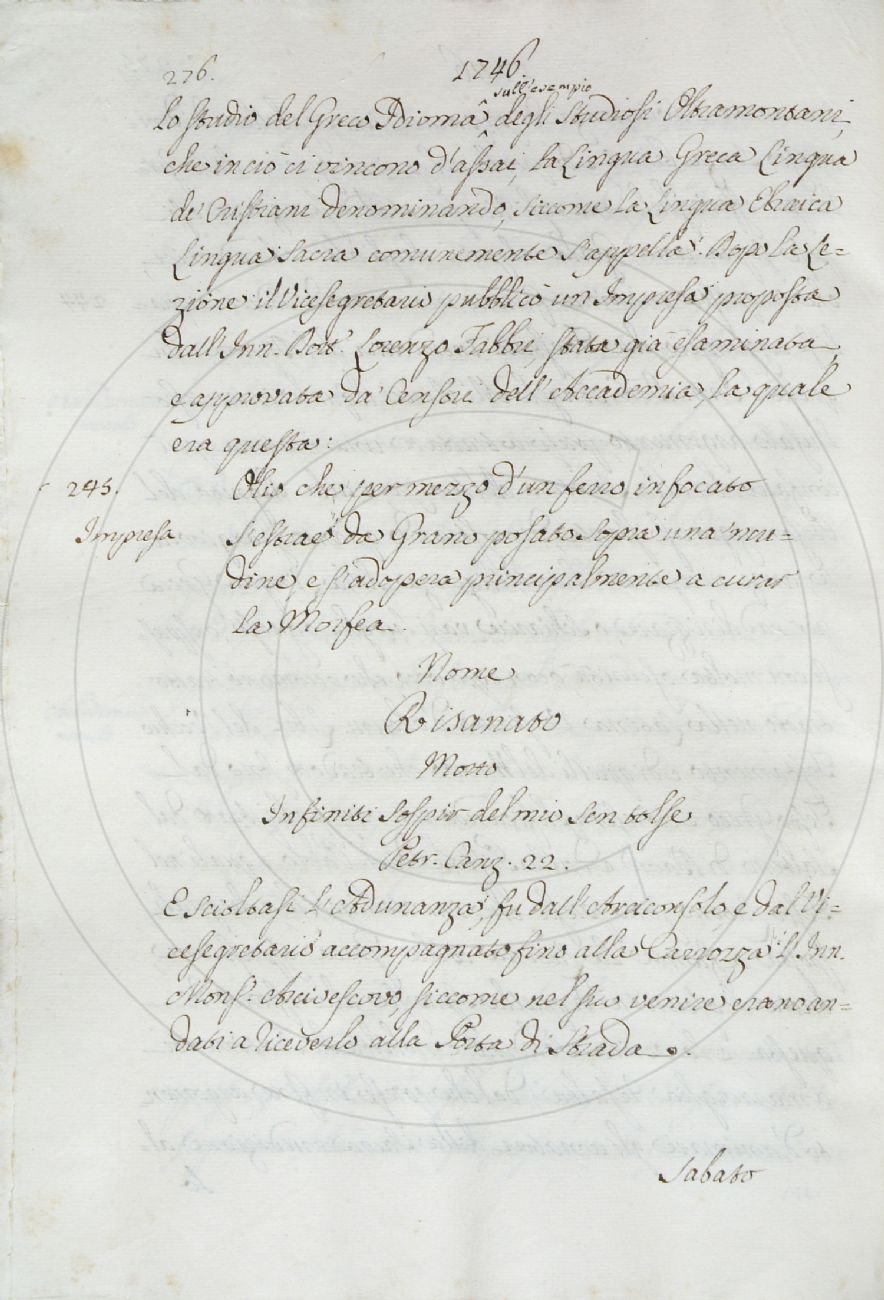 276.
1746
sull'esempio
Lo studio del Greco Idioma ^ degli Studiosi Oltramontani,
che in ciò ci vincono d'assai, la Lingua Greca Lingua
de' Cristiani denominando, siccome la Lingua Ebraica
Lingua Sacra comunemente s'appella. Dopo la Le=
zione il Vicesegretario pubblicò un Impresa proposta
dall'Inn. Dott. Lorenzo Fabbri, stata già esaminata,
e approvata da' Censori dell'Accademia, la quale
era questa:
245.
Impresa
Olio che per mezzo d'un ferro infocato
s'estrae da Grano posato sopra una 'ncu=
dine, e s'adopera principalmente a curar
la Morfea.
Nome
Risanato
Motto
Infiniti sospir del mio sen tolse
Petr. Canz. 22.
E scioltasi l'Adunanza, fu dall'Arciconsolo, e dal Vi=
cesegretario accompagnato fino alla Carrozza l'Inn.
Mons. Arcivescovo, siccome nel suo venire erano an=
dati a riceverlo alla Porta di Strada.
Sabato